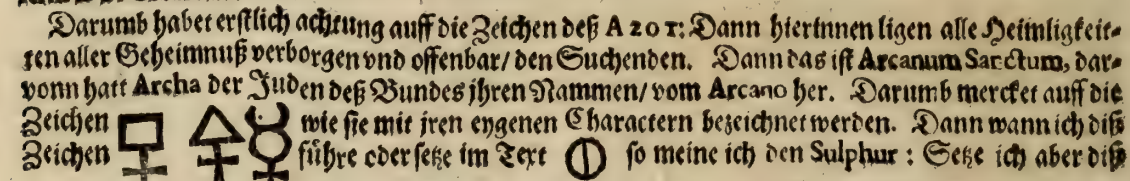 Darumb habet erstlich achtung auff die Zeichen deß AZOT: Dann hierinnen ligen alle Heimligkeit⸗
ten aller Geheimnuß verborgen vnd offenbar/ den Suchenden. Dann das ist Arcanum Sanctum, dar⸗
vonn hatt Archa der Juden deß Bundes jhren Nammen/ vom Arcano her. Darumb mercket auff die
Zeichen wie sie mit jren eygenen Charactern bezeichnet werden. Dann wann ich diß
Zeichen führe oder setze im Text so meine ich den Sulphur : Setze ich aber diß